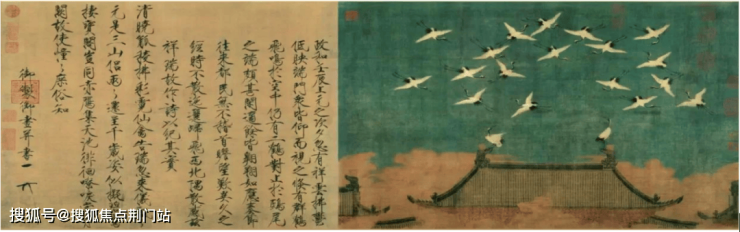 政和壬辰上元之次夕忽有祥雲拂鬱
低映端門眾皆仰而視之倏有群鶴
飛鳴於空中仍有二鶴對止於鴟尾
之端頗甚閒適餘皆翱翔如應奏節
往來都民無不稽首瞻望歎異久之
經時不散迤邐歸飛西北隅散感茲
祥瑞故作詩以紀其實
清曉觚稜拂彩霓仙禽告瑞忽來儀飄〻
元是三山侶兩〻還呈千歲姿似擬碧鸞
棲寶閣豈同赤雁集天池徘徊嘹唳當丹
闕故使憧〻庶俗知
御製御畫并書
搜狐号@搜狐焦点荆门站